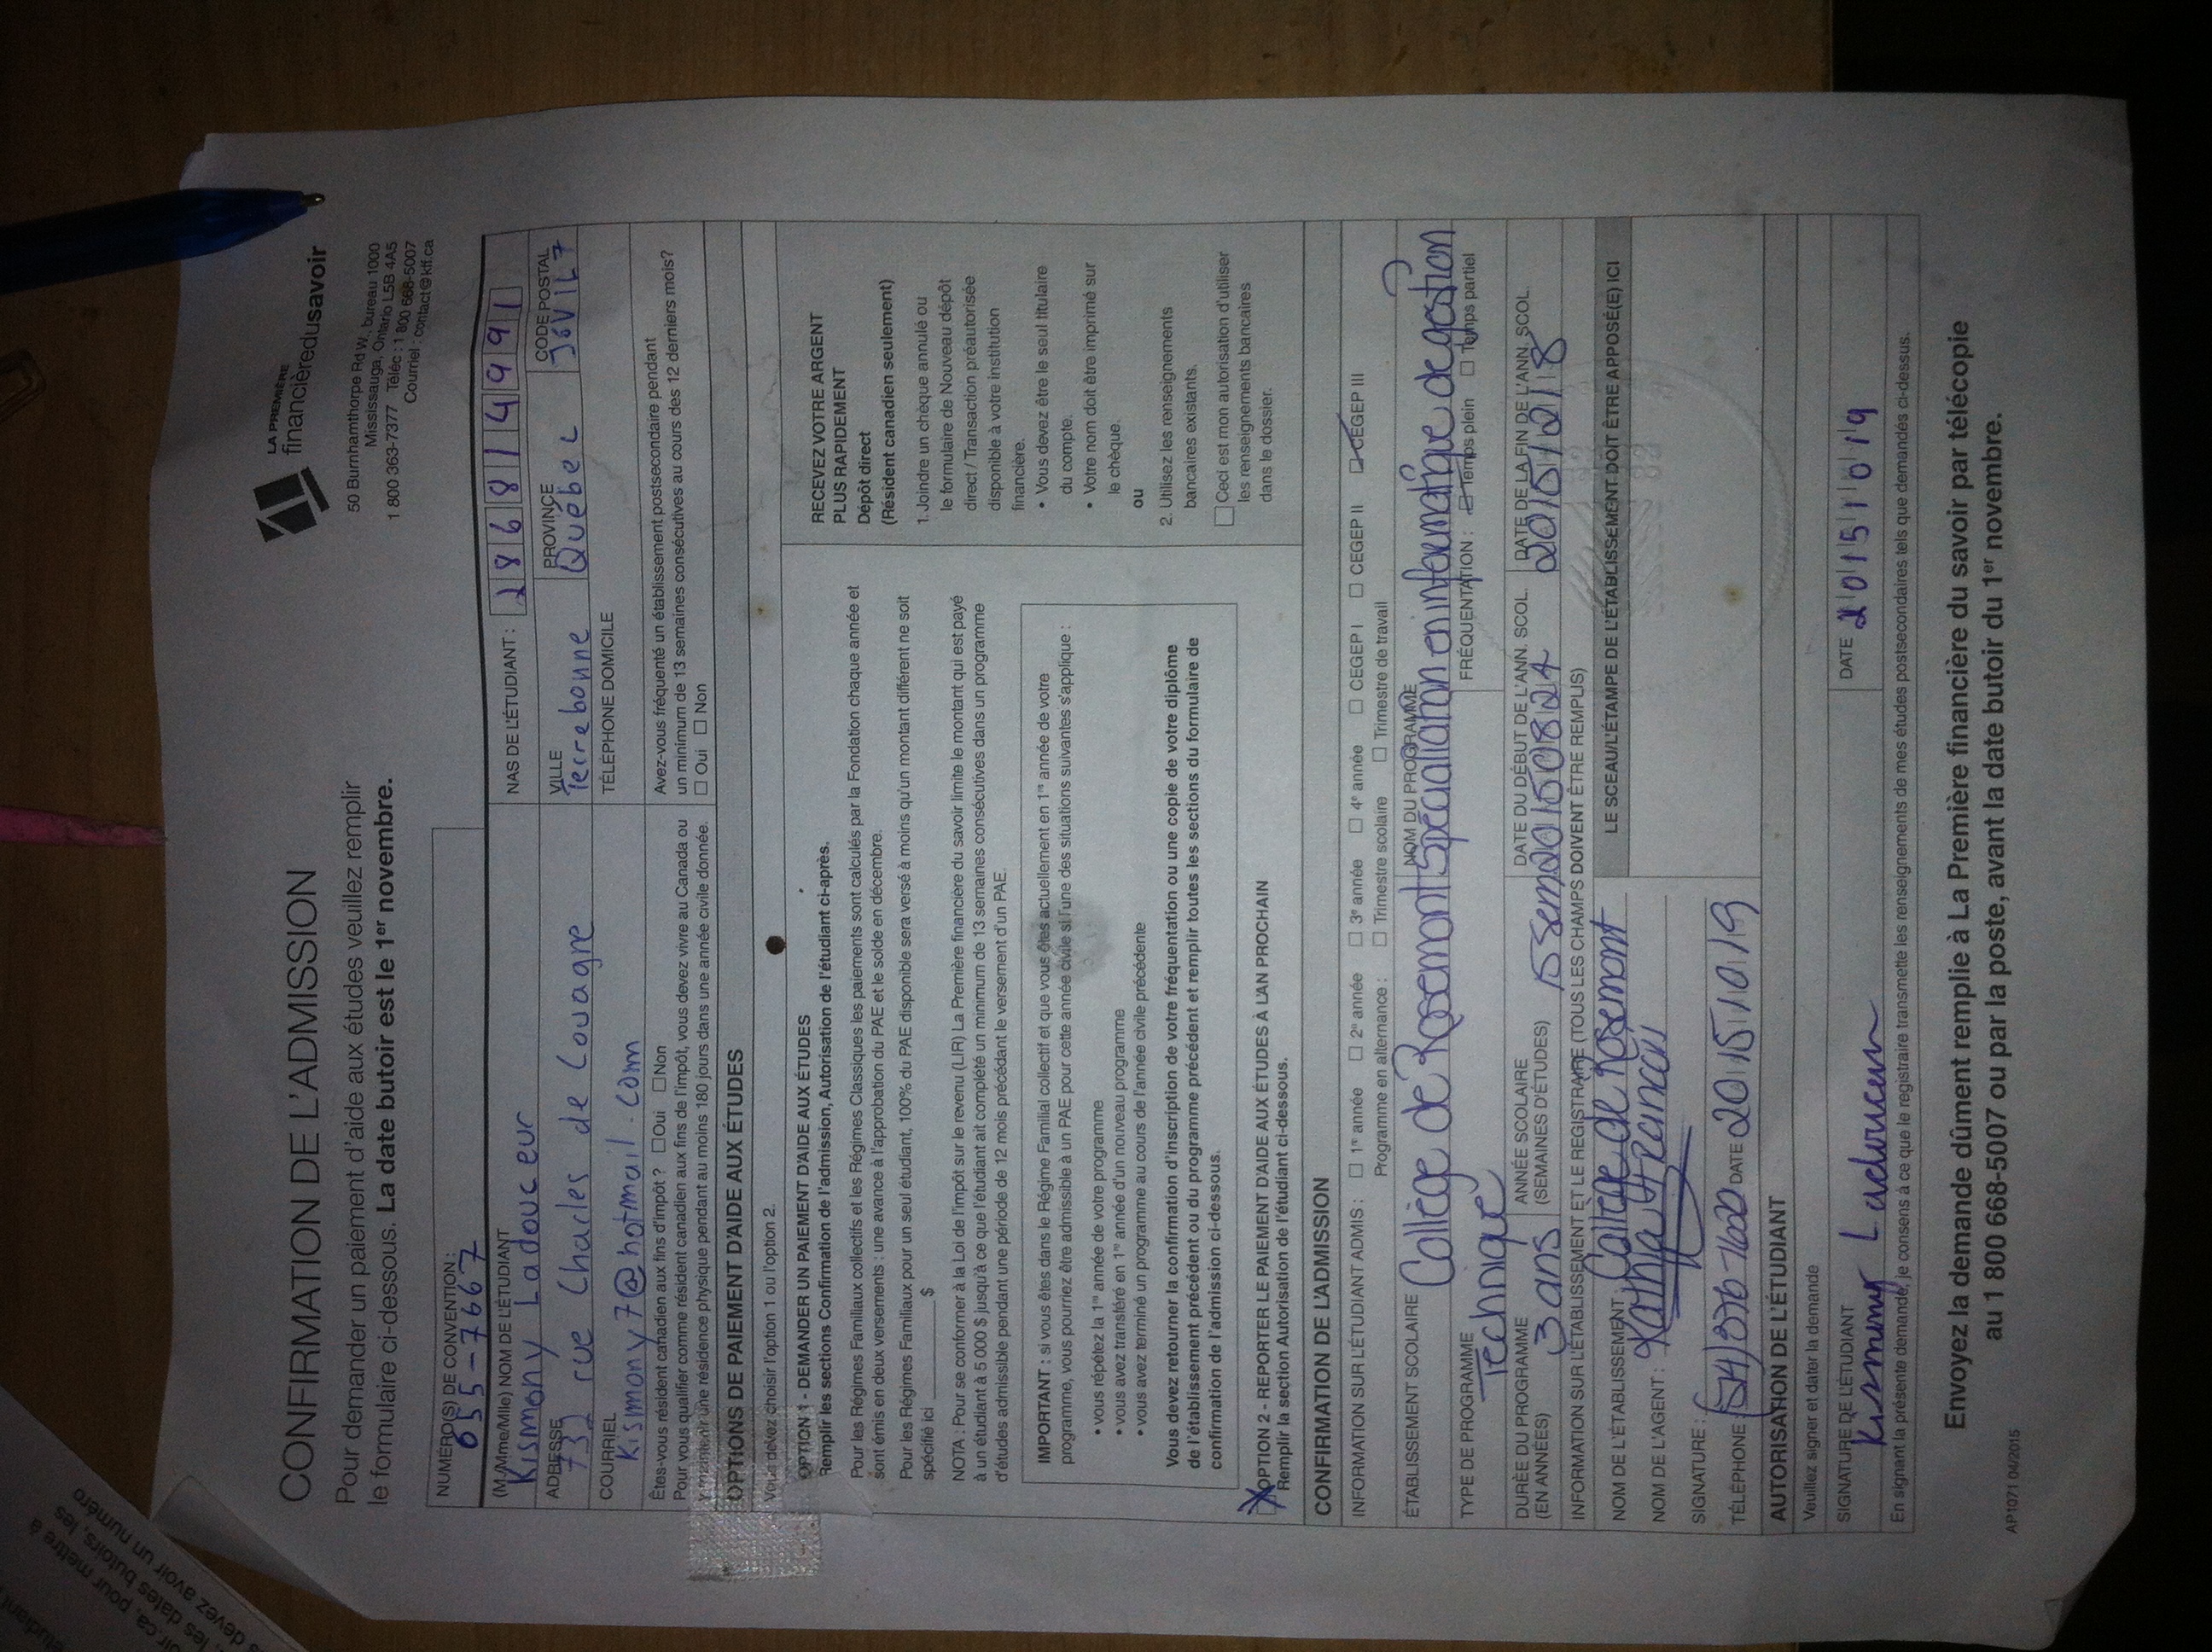 étudiant
oir.ca, pour mettre à
les dates butoirs, les
devez avoir un numéro
CONFIRMATION DE L'ADMISSION
Pour demander un paiement d'aide aux études veuillez remplir
le formulaire ci-dessous. La date butoir est le 1er novembre.
LA PREMIÈRE
financièredusavoir
50 Burnhamthorpe Rd W., bureau 1000
Mississauga, Ontario L5B 4A5
1 800 363-7377 Téléc : 1 800 668-5007
Courriel : contact@kff.ca
NUMÉRO(S) DE CONVENTION :
655-7667
(M./Mme/Mlle) NOM DE L'ÉTUDIANT
Kismony Ladouceur
NAS DE L'ÉTUDIANT : 286814991
ADRESSE
732 rue Charles de Couagne
VILLE
Terrebonne
PROVINCE
Québec
CODE POSTAL
J6V1L7
COURRIEL
Kismony7@hotmail.com
TÉLÉPHONE DOMICILE
Êtes-vous résident canadien aux fins d'impôt ? Oui Non
Pour vous qualifier comme résident canadien aux fins de l'impôt, vous devez vivre au Canada ou
y maintenir une résidence physique pendant au moins 180 jours dans une année civile donnée.
Avez-vous fréquenté un établissement postsecondaire pendant
un minimum de 13 semaines consécutives au cours des 12 derniers mois?
Oui Non
OPTIONS DE PAIEMENT D'AIDE AUX ÉTUDES
Vous devez choisir l'option 1 ou l'option 2.
OPTION 1 - DEMANDER UN PAIEMENT D'AIDE AUX ÉTUDES
Remplir les sections Confirmation de l'admission, Autorisation de l'étudiant ci-après.
Pour les Régimes Familiaux collectifs et les Régimes Classiques les paiements sont calculés par la Fondation chaque année et
sont émis en deux versements : une avance à l'approbation du PAE et le solde en décembre.
Pour les Régimes Familiaux pour un seul étudiant, 100% du PAE disponible sera versé à moins qu'un montant différent ne soit
spécifié ici __________ $
NOTA : Pour se conformer à la Loi de l'impôt sur le revenu (LIR) La Première financière du savoir limite le montant qui est payé
à un étudiant à 5 000 $ jusqu'à ce que l'étudiant ait complété un minimum de 13 semaines consécutives dans un programme
d'études admissible pendant une période de 12 mois précédant le versement d'un PAE.
IMPORTANT : si vous êtes dans le Régime Familial collectif et que vous êtes actuellement en 1re année de votre
programme, vous pourriez être admissible à un PAE pour cette année civile si l'une des situations suivantes s'applique :
• vous répétez la 1re année de votre programme
• vous avez transféré en 1re année d'un nouveau programme
• vous avez terminé un programme au cours de l'année civile précédente
Vous devez retourner la confirmation d'inscription de votre fréquentation ou une copie de votre diplôme
de l'établissement précédent ou du programme précédent et remplir toutes les sections du formulaire de
confirmation de l'admission ci-dessous.
OPTION 2 - REPORTER LE PAIEMENT D'AIDE AUX ÉTUDES À L'AN PROCHAIN
Remplir la section Autorisation de l'étudiant ci-dessous.
RECEVEZ VOTRE ARGENT
PLUS RAPIDEMENT
Dépôt direct
(Résident canadien seulement)
1. Joindre un chèque annulé ou
le formulaire de Nouveau dépôt
direct / Transaction préautorisée
disponible à votre institution
financière.
• Vous devez être le seul titulaire
du compte.
• Votre nom doit être imprimé sur
le chèque.
ou
2. Utilisez les renseignements
bancaires existants.
Ceci est mon autorisation d'utiliser
les renseignements bancaires
dans le dossier.
CONFIRMATION DE L'ADMISSION
INFORMATION SUR L'ÉTUDIANT ADMIS : 1re année 2e année 3e année 4e année CEGEP I CEGEP II CEGEP III
Programme en alternance : Trimestre scolaire Trimestre de travail
ÉTABLISSEMENT SCOLAIRE Collège de Rosemont
NOM DU PROGRAMME
Spécialiation en informatique de gestion
TYPE DE PROGRAMME
Technique
FRÉQUENTATION : Temps plein Temps partiel
DURÉE DU PROGRAMME
(EN ANNÉES) 3 ans
ANNÉE SCOLAIRE
(SEMAINES D'ÉTUDES) 15 Sem
DATE DU DÉBUT DE L'ANN. SCOL.
20150824
DATE DE LA FIN DE L'ANN. SCOL.
20151218
INFORMATION SUR L'ÉTABLISSEMENT ET LE REGISTRAIRE (TOUS LES CHAMPS DOIVENT ÊTRE REMPLIS)
NOM DE L'ÉTABLISSEMENT : Collège de Rosemont
LE SCEAU/L'ÉTAMPE DE L'ÉTABLISSEMENT DOIT ÊTRE APPOSÉ(E) ICI
NOM DE L'AGENT : Kathia Francois
SIGNATURE :
TÉLÉPHONE : (514) 376-1620 DATE 20151019
AUTORISATION DE L'ÉTUDIANT
Veuillez signer et dater la demande
SIGNATURE DE L'ÉTUDIANT
Kismony Ladouceur
DATE 20151019
En signant la présente demande, je consens à ce que le registraire transmette les renseignements de mes études postsecondaires tels que demandés ci-dessus.
Envoyez la demande dûment remplie à La Première financière du savoir par télécopie
au 1 800 668-5007 ou par la poste, avant la date butoir du 1er novembre.
AP1071 04/2015